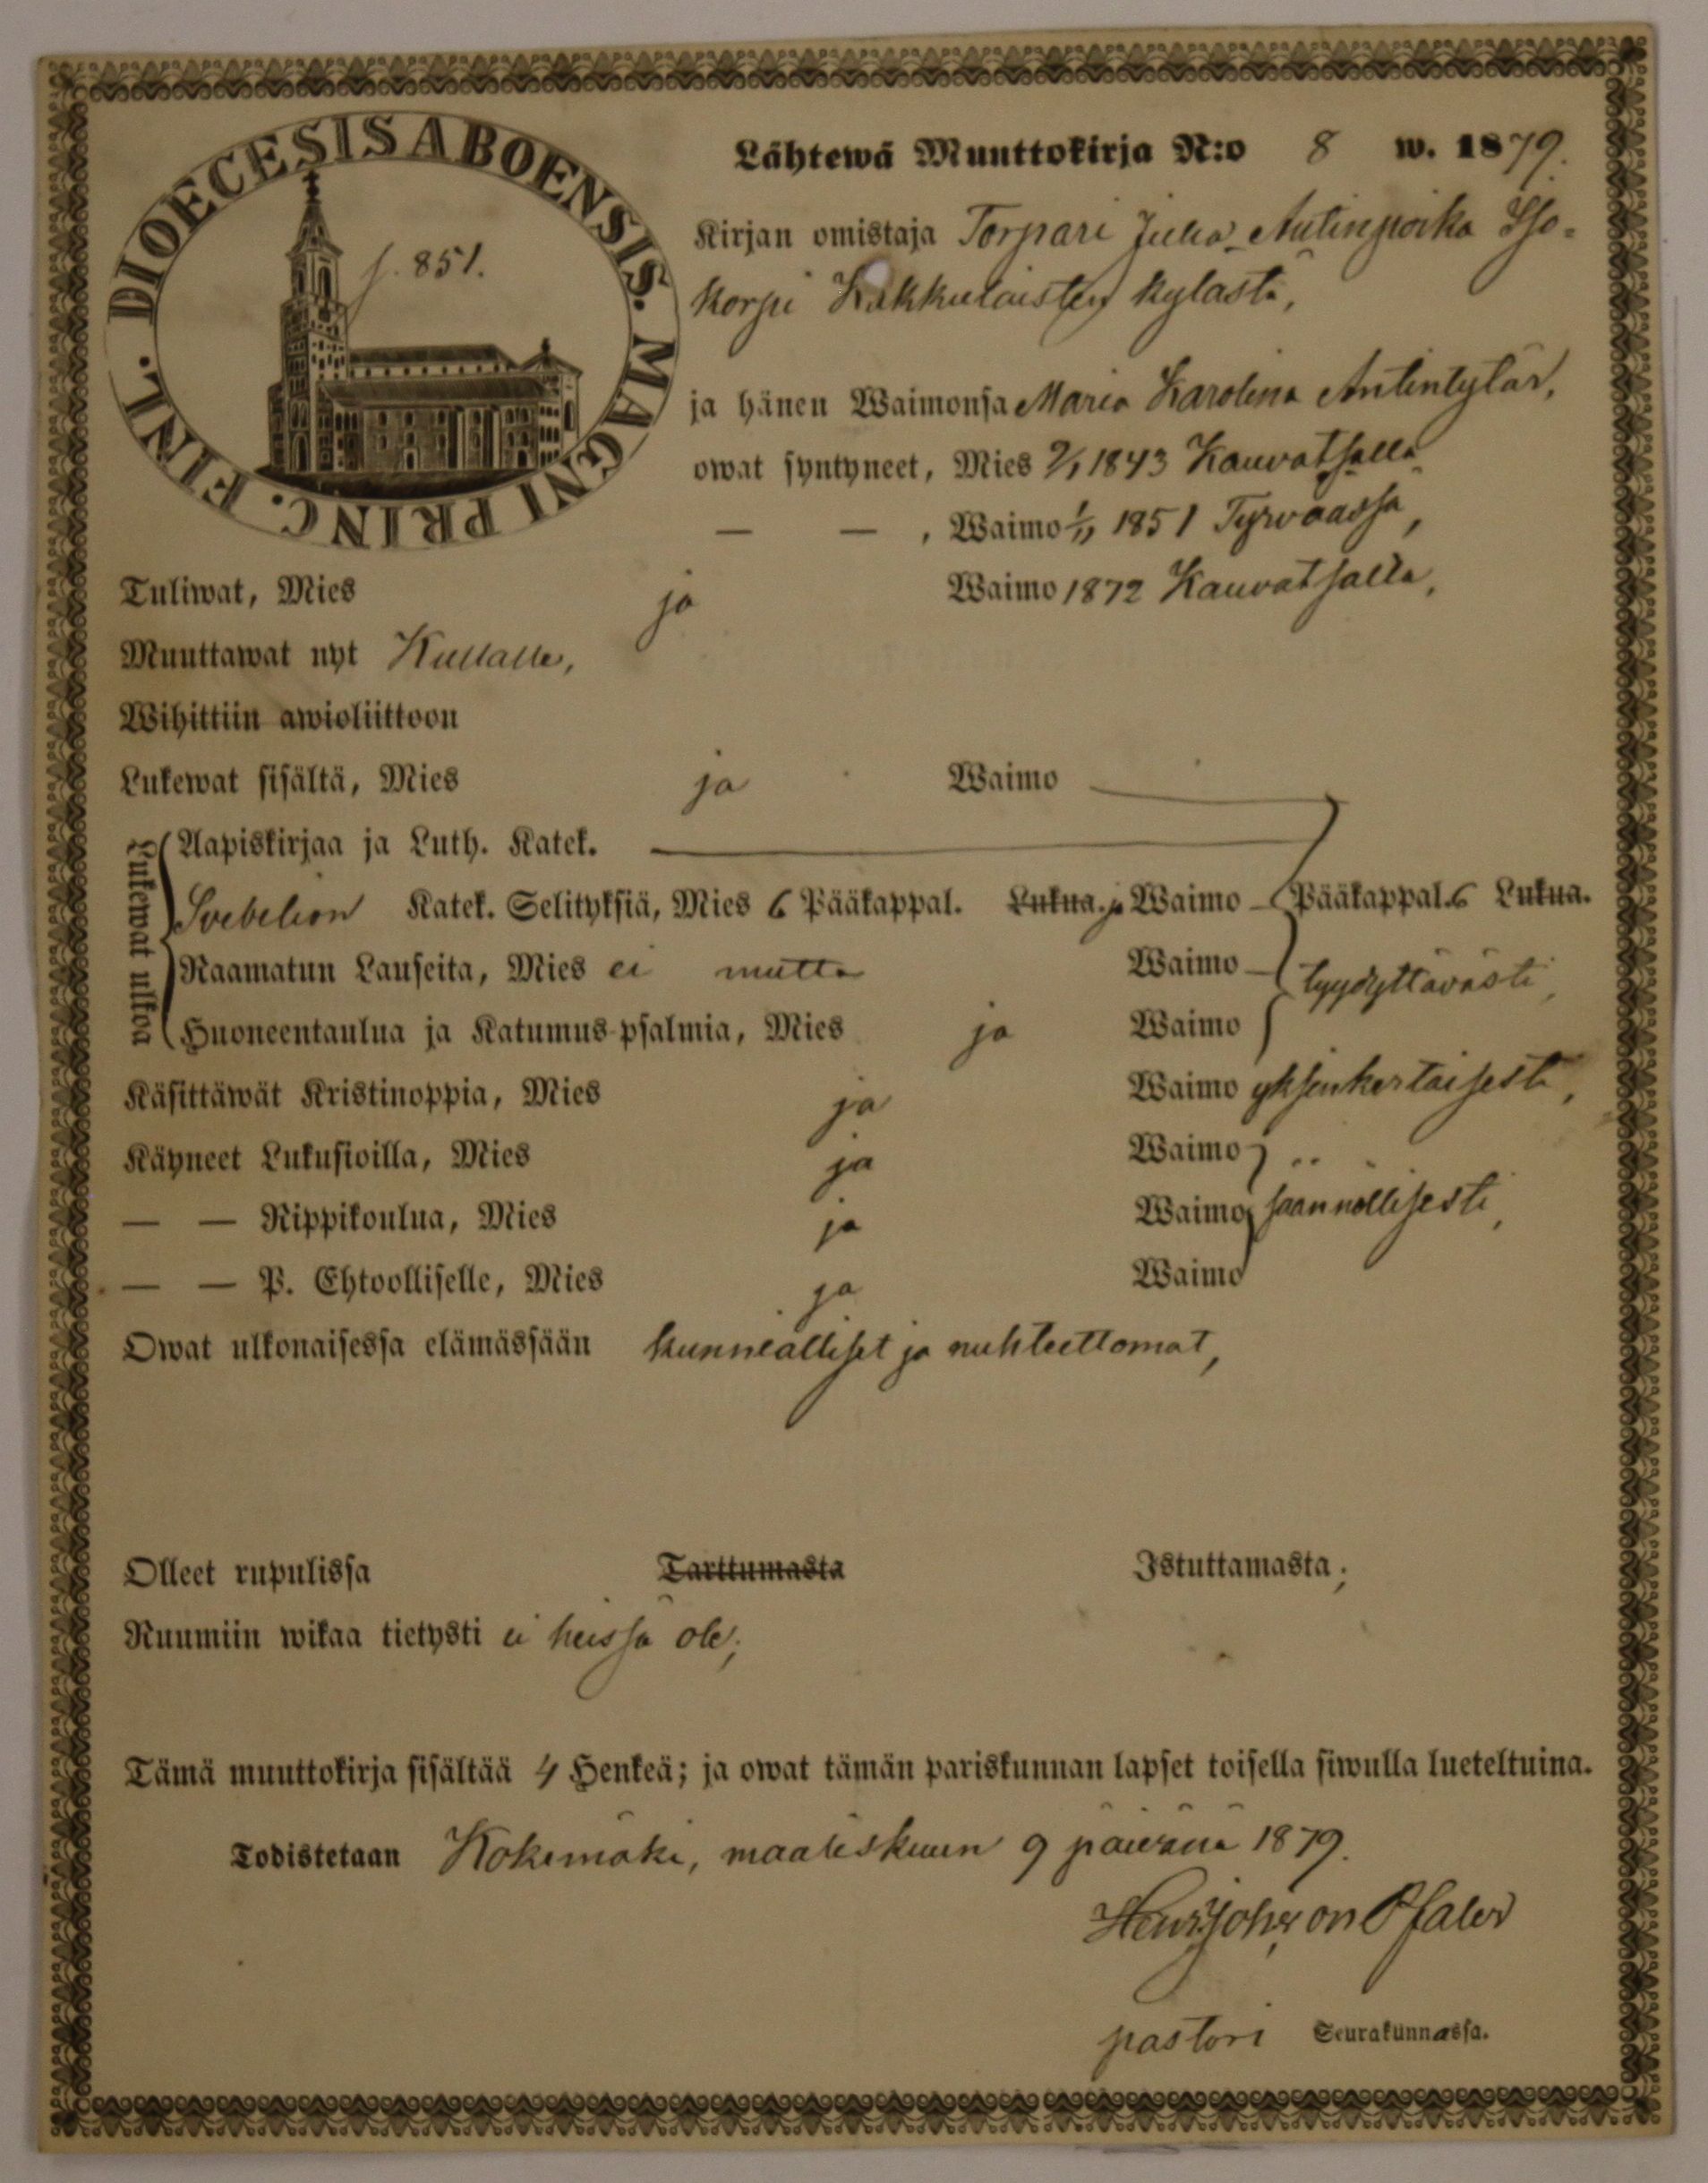 DIOECESIS ABOENSIS. MAGNI PRINC. FINL.
f. 851.
Lähtewä Muuttokirja N:o 8 w. 1879.
Kirjan omistaja Torpari Juha Antinpoika Iso-
korpi Kakkulaisten kylästä,
ja hänen Waimonsa Maria Karolina Antintytär,
owat syntyneet, Mies 9/1 1843 Kauvatsalla
— — , Waimo 1/11 1851 Tyrväässä,
Tuliwat, Mies ja Waimo 1872 Kauvatsalta,
Muuttawat nyt Kullalle,
Wihittiin awioliittoon
Lukewat sisältä, Mies ja Waimo
Lukewat ulkoa
Aapiskirjaa ja Luth. Katek.
Svebelion Katek. Selityksiä, Mies 6 Pääkappal. Lukua. ja Waimo Pääkappal. 6 Lukua.
Raamatun Lauseita, Mies ei mutta Waimo tyydyttävästi,
Huoneentaulua ja Katumus-psalmia, Mies ja Waimo
Käsittäwät Kristinoppia, Mies ja Waimo yksinkertaisesti,
Käyneet Lukusioilla, Mies ja Waimo
— — Rippikoulua, Mies ja Waimo säännöllisesti,
— — P. Ehtoolliselle, Mies ja Waimo
Owat ulkonaisessa elämässään kunnialliset ja nuhteettomat,
Olleet rupulissa Tarttumasta Istuttamasta;
Ruumiin wikaa tietysti ei heissä ole;
Tämä muuttokirja sisältää 4 Henkeä; ja owat tämän pariskunnan lapset toisella siwulla lueteltuina.
Todistetaan Kokemäki, maaliskuun 9 päivänä 1879.
von Pfaler
pastori Seurakunnassa.